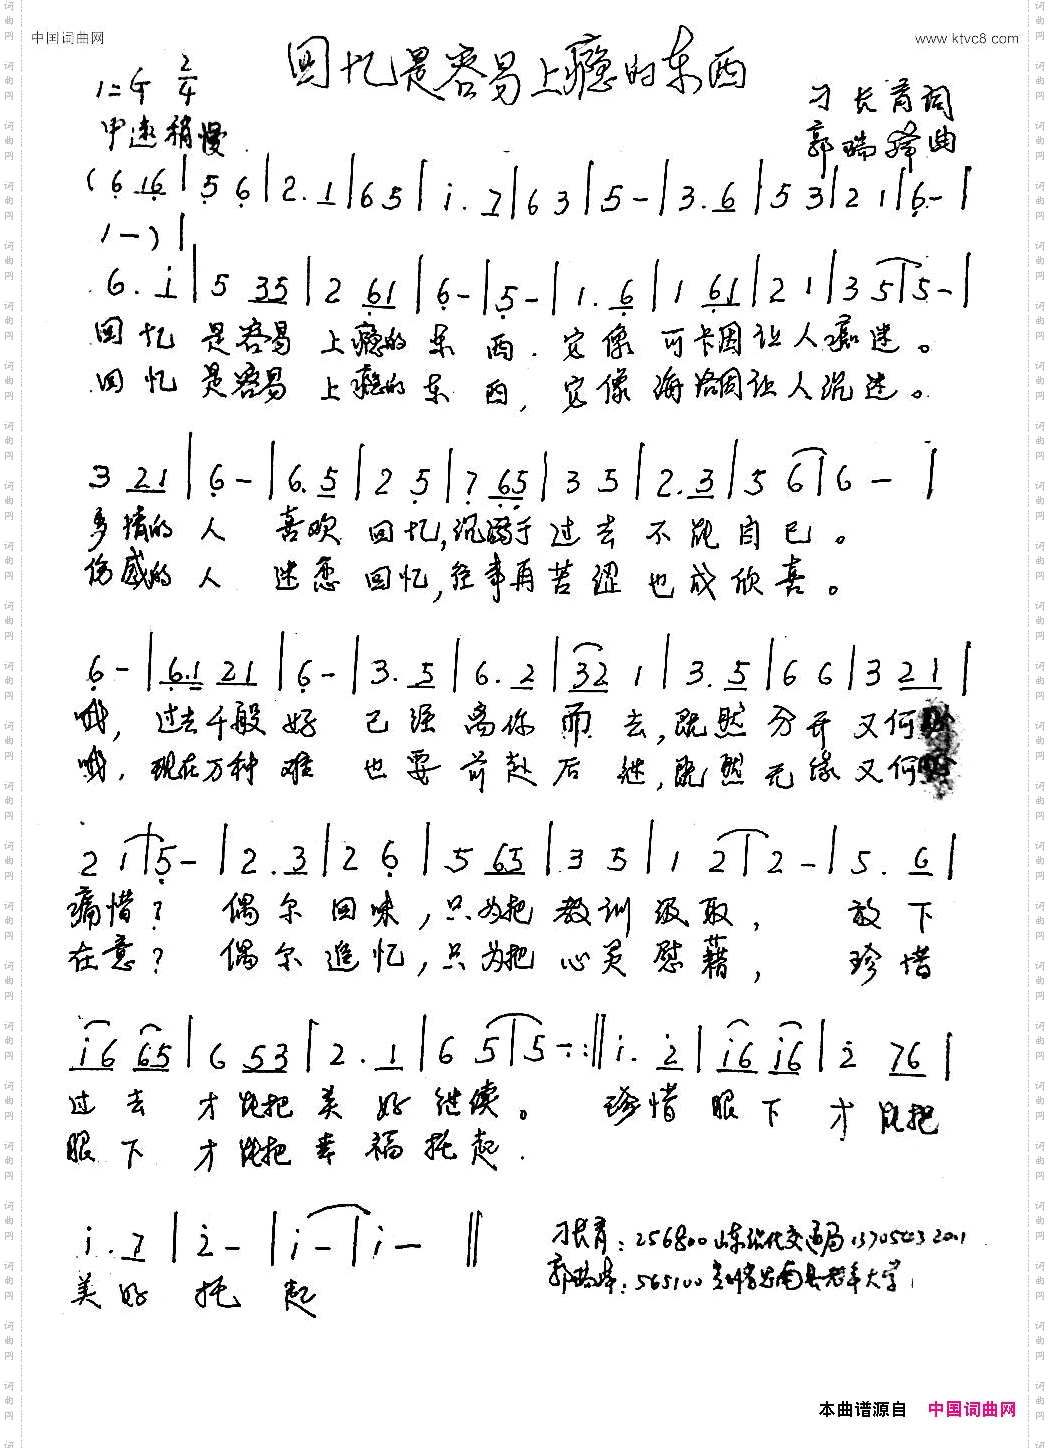 中国词曲网
www.ktvc8.com
回忆是容易上瘾的东西
1=G 2/4
中速稍慢
刁长育词
郭瑞峰曲
(6 16|5 6|2. 1|6 5|i. 7|6 3|5 -|3. 6|5 3|2 1|6 -|
1 -)|
6. i|5 35|2 61|6 -|5 -|1. 6|1 61|2 1|3 5|5 -|
回忆 是容易 上瘾的东西. 它像可卡因让人痴迷。
回忆 是容易 上瘾的东西, 它像海洛因让人沉迷。
3 21|6 -|6. 5|2 5|7 65|3 5|2. 3|5 6|6 -|
多情的人 喜欢回忆,沉溺于过去不能自已。
伤感的人 迷恋回忆,往事再苦涩也成欣喜。
6 -|6.1 21|6 -|3. 5|6. 2|32 1|3. 5|6 6|3 21|
哦, 过去千般好 已经离你而去,既然分开又何
哦, 现在万种难 也要前赴后继,既然无缘又何
2 1|5 -|2. 3|2 6|5 65|3 5|1 2|2 -|5. 6|
痛惜? 偶尔回味,只为把教训汲取, 放下
在意? 偶尔追忆,只为把心灵慰藉, 珍惜
i6 65|6 53|2. 1|6 5|5 -:‖i. 2|i6 i6|2 76|
过去 才能把美好继续。 珍惜眼下才能把
眼下 才能把幸福托起.
i. 7|2 -|i -|i -‖
美好托起
刁长育:256800山东沾化交通局
郭瑞峰:565100 老年大学
本曲谱源自 中国词曲网